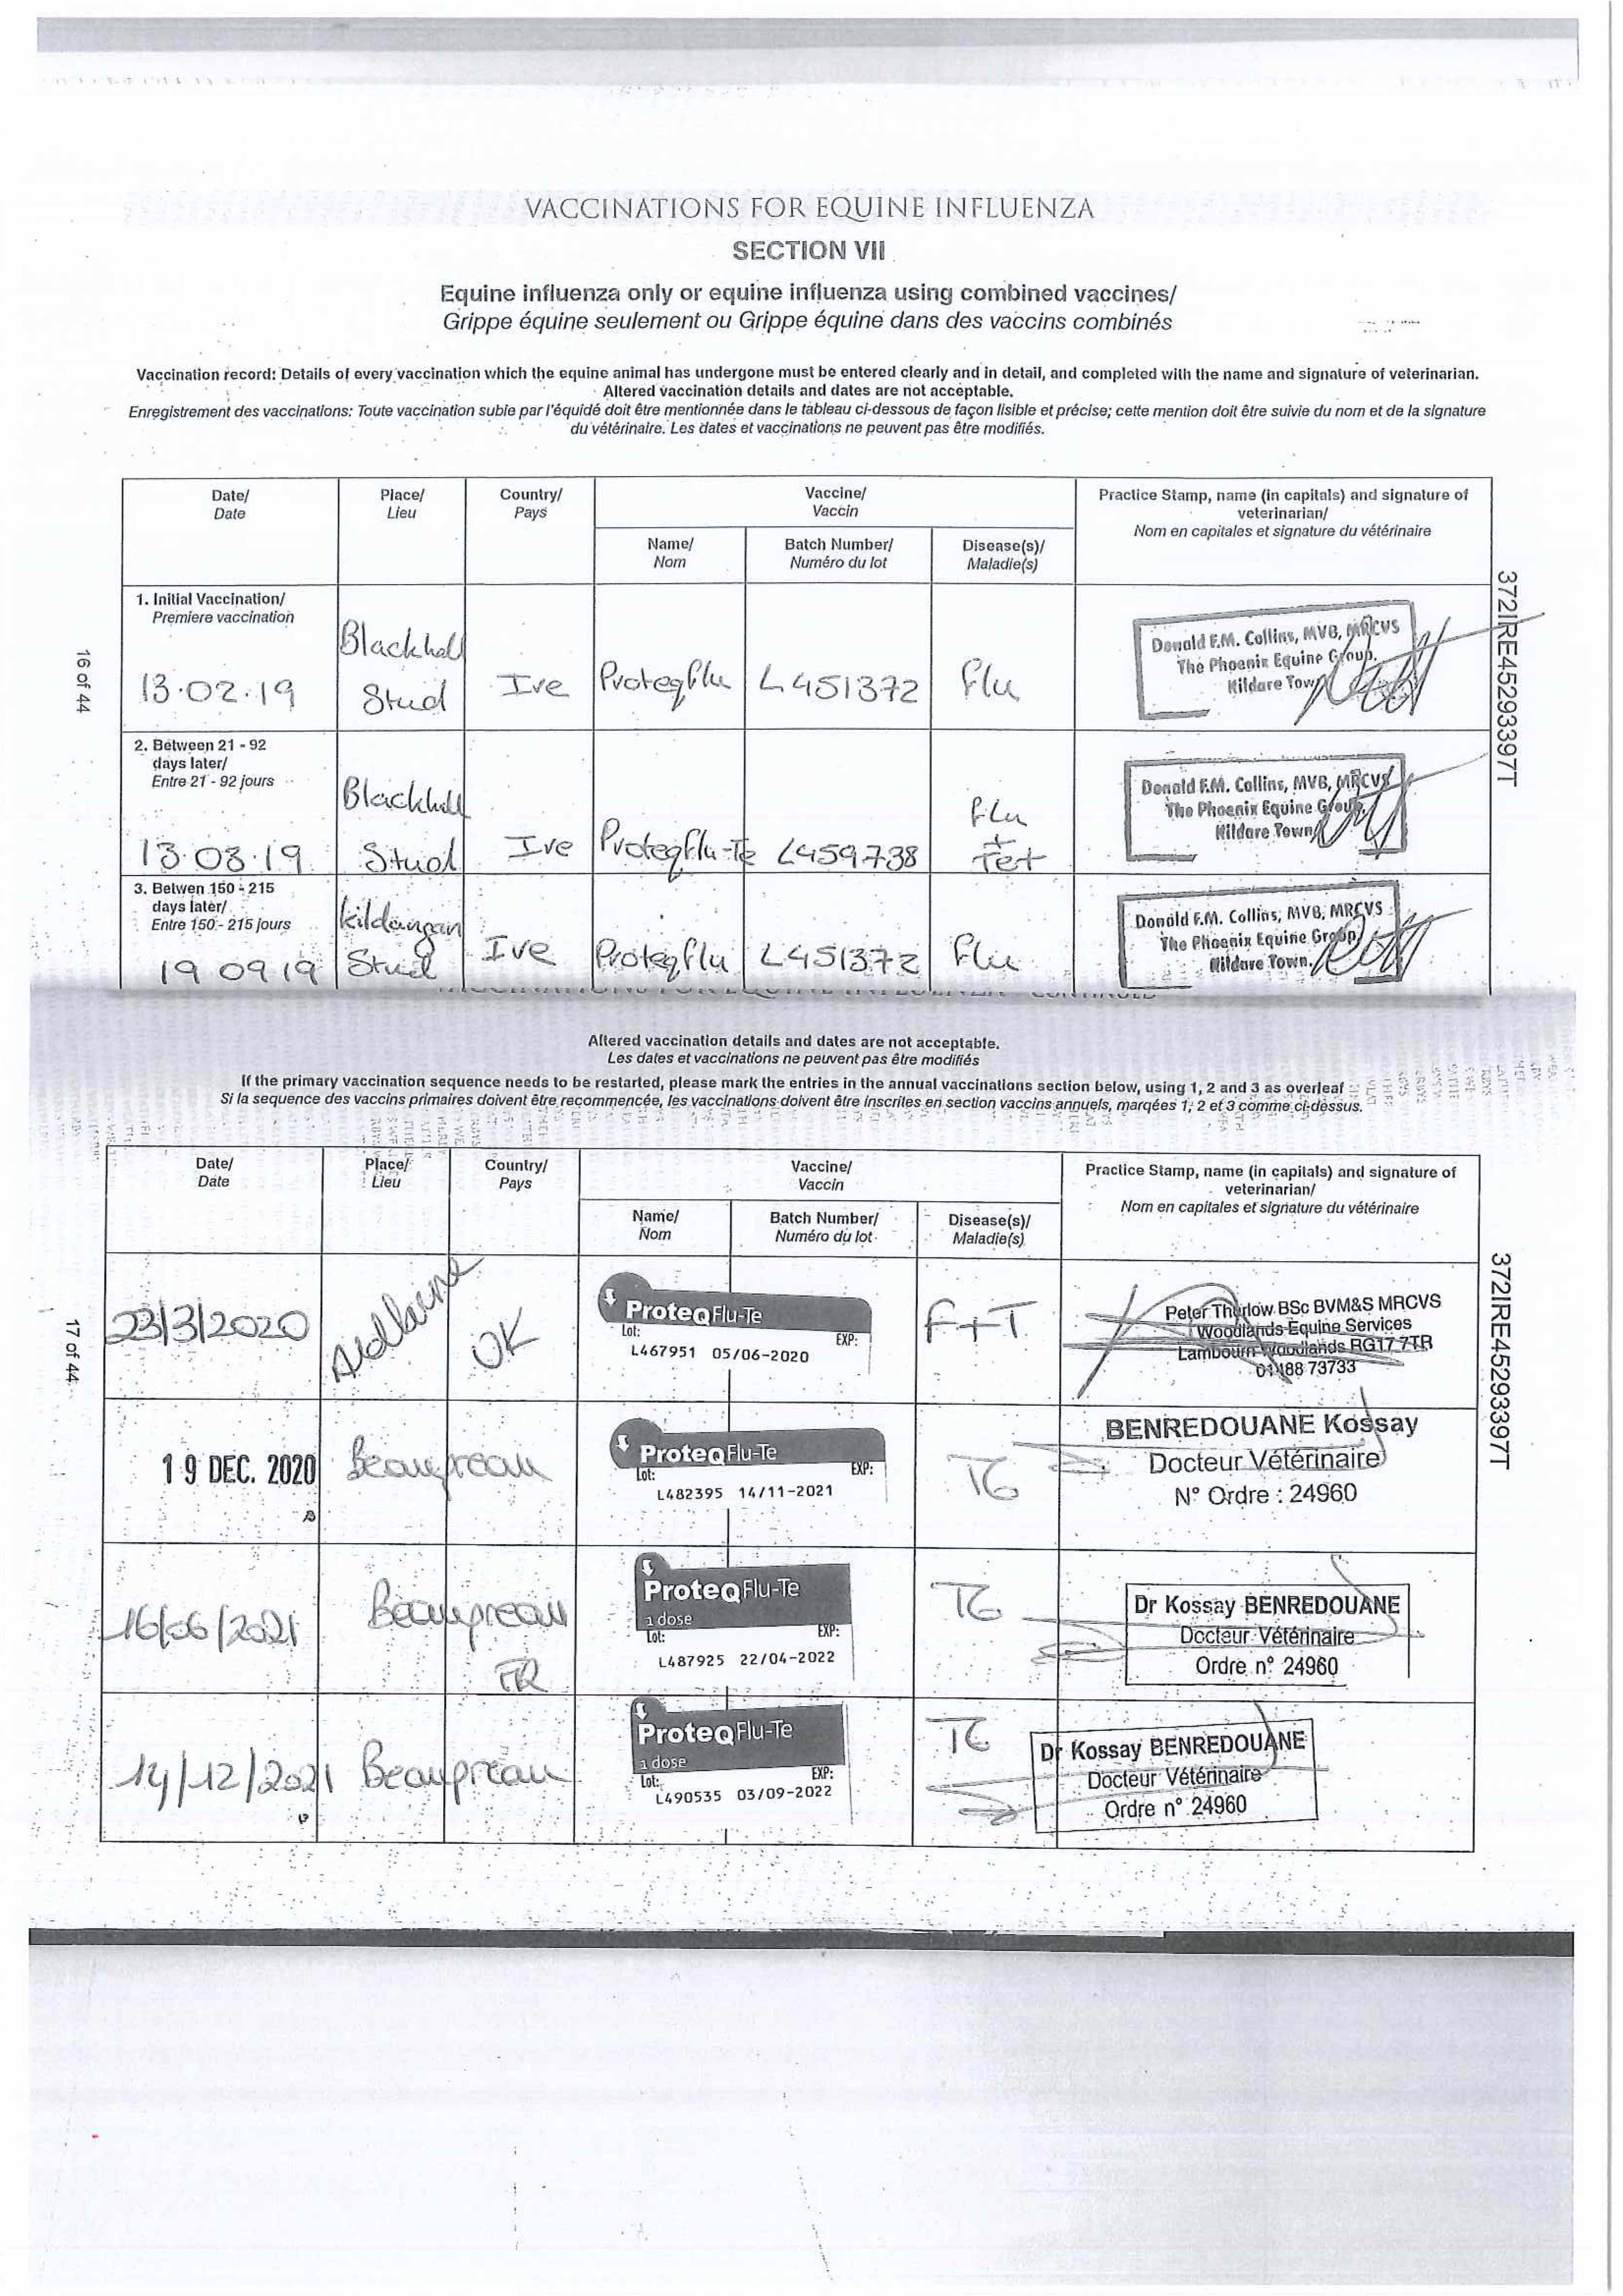 VACCINATIONS FOR EQUINE INFLUENZA
SECTION VII
Equine influenza only or equine influenza using combined vaccines/
Grippe équine seulement ou Grippe équine dans des vaccins combinés
Vaccination record: Details of every vaccination which the equine animal has undergone must be entered clearly and in detail, and completed with the name and signature of veterinarian.
Altered vaccination details and dates are not acceptable.
Enregistrement des vaccinations: Toute vaccination subie par l'équidé doit être mentionnée dans le tableau ci-dessous de façon lisible et précise; cette mention doit être suivie du nom et de la signature
du vétérinaire. Les dates et vaccinations ne peuvent pas être modifiés.
Date/
Date
Place/
Lieu
Country/
Pays
Vaccine/
Vaccin
Name/
Nom
Batch Number/
Numéro du lot
Disease(s)/
Maladie(s)
Practice Stamp, name (in capitals) and signature of
veterinarian/
Nom en capitales et signature du vétérinaire
1. Initial Vaccination/
Premiere vaccination
13.02.19
Blackhall
Stud
Ire
Proteqflu
L451372
Flu
Donald F.M. Collins, MVB, MRCVS
The Phoenix Equine Group,
Kildare Town
2. Between 21 - 92
days later/
Entre 21 - 92 jours
13.03.19
Blackhall
Stud
Ire
Proteqflu-Te
L459738
Flu
+
Tet
Donald F.M. Collins, MVB, MRCVS
The Phoenix Equine Group,
Kildare Town
3. Betwen 150 - 215
days later/
Entre 150 - 215 jours
19 09 19
Kildangan
Stud
Ire
Proteqflu
L451372
Flu
Donald F.M. Collins, MVB, MRCVS
The Phoenix Equine Group,
Kildare Town.
16 of 44
372IRE45293397T
Altered vaccination details and dates are not acceptable.
Les dates et vaccinations ne peuvent pas être modifiés
If the primary vaccination sequence needs to be restarted, please mark the entries in the annual vaccinations section below, using 1, 2 and 3 as overleaf
Si la sequence des vaccins primaires doivent être recommencée, les vaccinations doivent être inscrites en section vaccins annuels, marqées 1, 2 et 3 comme ci-dessus.
Date/
Date
Place/
Lieu
Country/
Pays
Vaccine/
Vaccin
Name/
Nom
Batch Number/
Numéro du lot
Disease(s)/
Maladie(s)
Practice Stamp, name (in capitals) and signature of
veterinarian/
Nom en capitales et signature du vétérinaire
23/3/2020
UK
ProteqFlu-Te
Lot: EXP:
L467951 05/06-2020
F+T
Peter Thurlow BSc BVM&S MRCVS
Woodlands Equine Services
Lambourn Woodlands RG17 7TR
01488 73733
19 DEC. 2020
Beaupreau
ProteqFlu-Te
Lot: EXP:
L482395 14/11-2021
TG
BENREDOUANE Kossay
Docteur Vétérinaire
N° Ordre : 24960
16/06/2021
Beaupreau
FR
ProteqFlu-Te
1 dose
Lot: EXP:
L487925 22/04-2022
TG
Dr Kossay BENREDOUANE
Docteur Vétérinaire
Ordre n° 24960
14/12/2021
Beaupreau
ProteqFlu-Te
1 dose
Lot: EXP:
L490535 03/09-2022
TG
Dr Kossay BENREDOUANE
Docteur Vétérinaire
Ordre n° 24960
17 of 44
372IRE45293397T